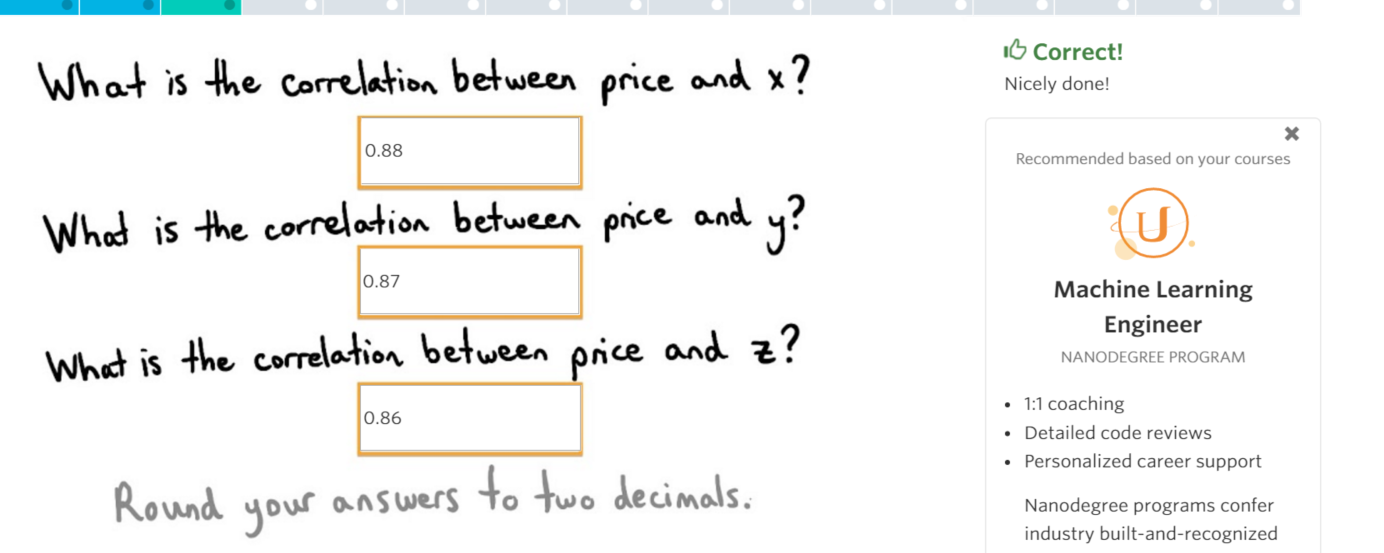 What is the correlation between price and x?
0.88
What is the correlation between price and y?
0.87
What is the correlation between price and z?
0.86
Round your answers to two decimals.
Correct!
Nicely done!
Recommended based on your courses
U
Machine Learning
Engineer
NANODEGREE PROGRAM
• 1:1 coaching
• Detailed code reviews
• Personalized career support
Nanodegree programs confer
industry built-and-recognized